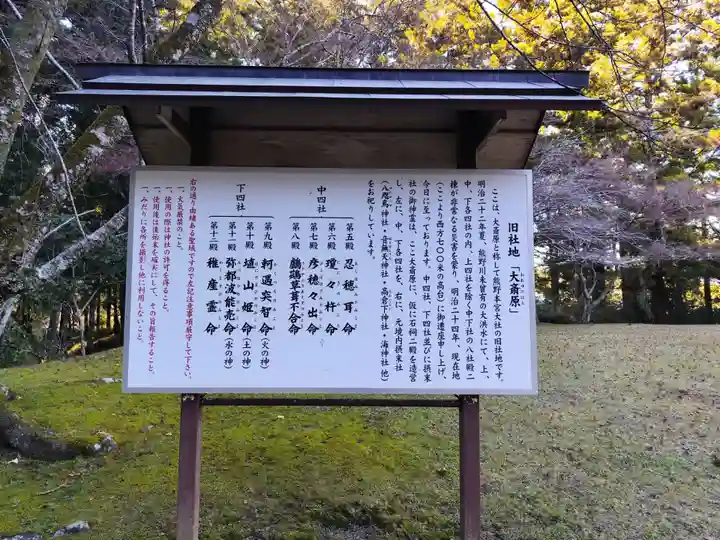 旧社地「大斎原」
おおゆのはら
ここは、大斎原と称して熊野本宮大社の旧社地です。
明治二十二年夏、熊野川未曾有の大洪水にて、上、
中、下各四社の内、上四社を除く中下社の八社殿二
棟が非常なる災害を蒙り、明治二十四年、現在地
(ここより西方七〇〇米の高台)に御遷座申し上げ、
今日に至っております。中四社、下四社並びに摂末
社の御神霊は、ここ大斎原に、仮に石祠二殿を造営
し、左に、中、下各四社を、右に、元境内摂末社
(八咫烏神社・音無天神社・高倉下神社・海神社 他)
をお祀りしています。
中四社
第五殿 忍穂耳命
第六殿 瓊々杵命
第七殿 彦穂々出命
第八殿 鸕鶿草葺不合命
下四社
第九殿 軻遇突智命(火の神)
第十殿 埴山姫命(土の神)
第十一殿 弥都波能売命(水の神)
第十二殿 稚産霊命
右の通り由緒ある聖域ですので左記注意事項厳守して下さい。
一、火気厳禁のこと。
一、使用の際は神社の許可を得ること。
一、使用後は後始末を確実にして、その旨報告すること。
一、みだりに各所を撮影し他に利用しないこと。